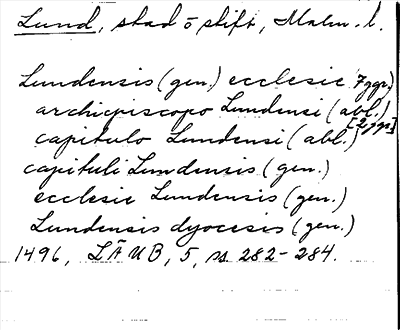 Lund, stad o stift, Malm. l.
Lundensis (gen.) ecclesie [7 ggr.]
archiepiscopo Lundensi (abl.)
capitulo Lundensi (abl.) [2 ggr]
capituli Lundensis (gen.)
ecclesie Lundensis (gen.)
Lundensis dyocesis (gen.)
1496, LÄUB, 5, ss. 282-284.